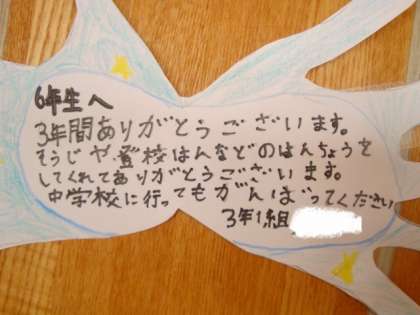 6年生へ
3年間ありがとうございます。
そうじや、登校はんなどのはんちょうを
してくれてありがとうございます。
中学校に行ってもがんばってください
3年1組